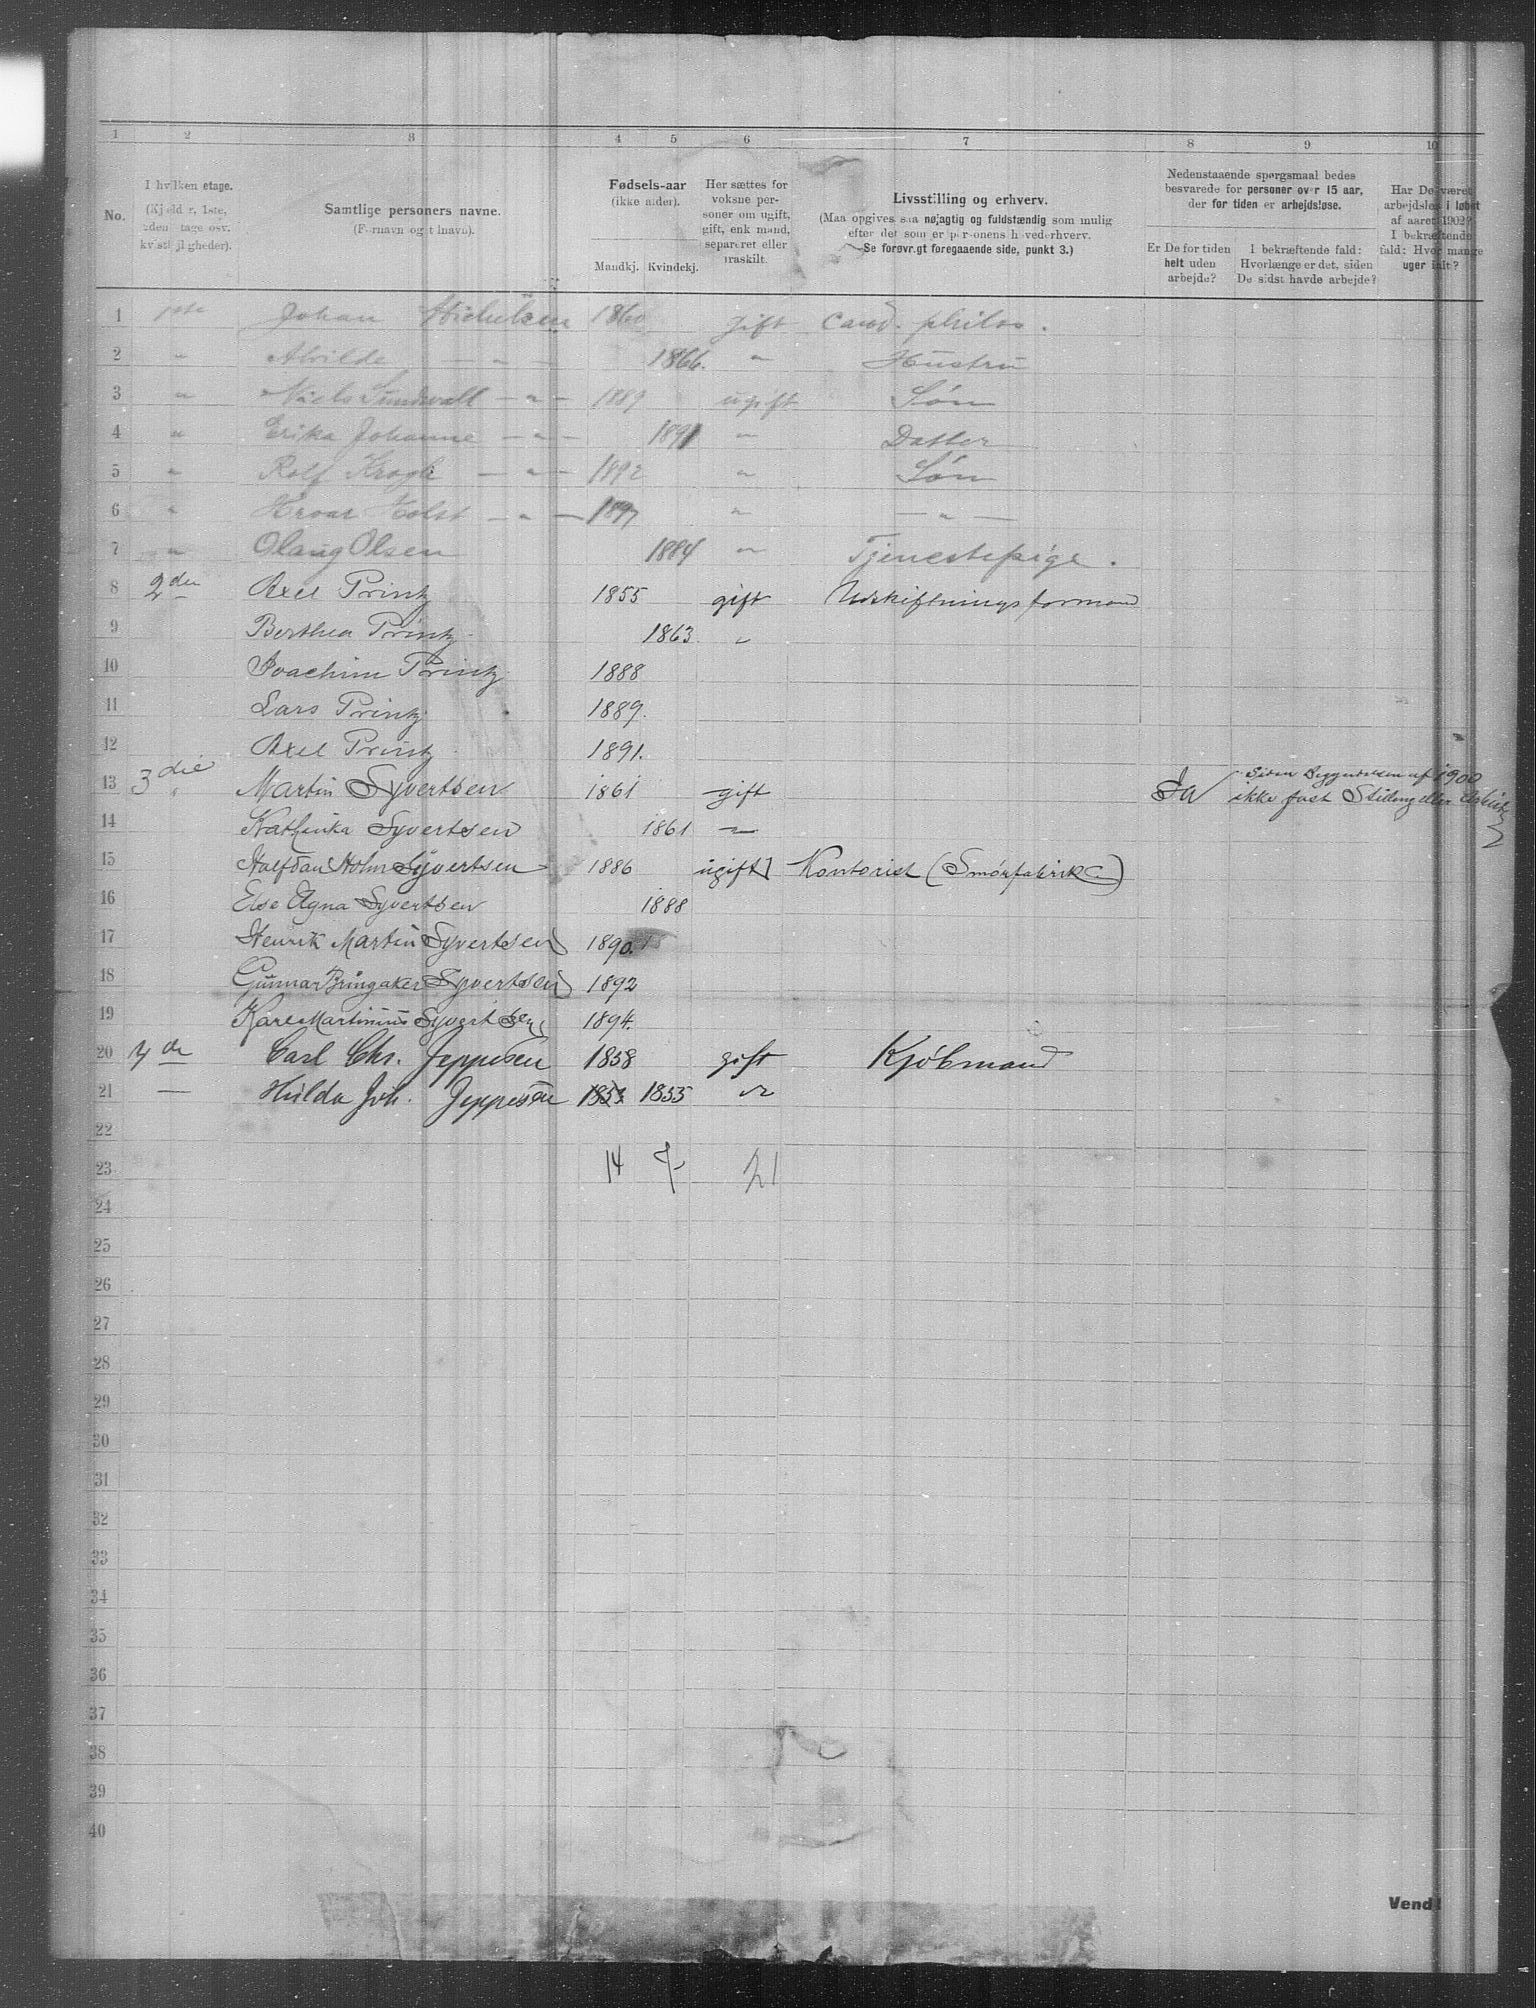 1 2 3 4 5 6 7 8 9 10
No.
I hvilken etage.
(Kjelder, 1ste, 2den etage osv. kvistleiligheder).
Samtlige personers navne.
(Fornavn og tilnavn).
Fødsels-aar
(ikke alder).
Mandkj. Kvindekj.
Her sættes for voksne personer om ugift, gift, enkemand, separeret eller fraskilt.
Livsstilling og erhverv.
(Maa opgives saa nøjagtig og fuldstændig som mulig efter det som er personens hovederhverv.
Se forøvrigt foregaaende side, punkt 3.)
Nedenstaaende spørgsmaal bedes besvarede for personer over 15 aar, der for tiden er arbejdsløse.
Er De for tiden helt uden arbejde?
I bekræftende fald: Hvorlænge er det, siden De sidst havde arbejde?
Har De været arbejdsløs i løbet af aaret 1902? I bekræftende fald: Hvor mange uger ialt?
1 1ste Johan 1860 gift cand. philos.
2 " Alvilde — " — 1866. " Hustru
3 " Niels Sundwall — " — 1889 ugift Søn
4 " Erika Johanne — " — 1891 " Datter
5 " Rolf Krogh — " — 1892 " Søn
6 " Hroar Holst — " — 1897 " — " —
7 " Olaug Olsen 1884 " Tjenestepige.
8 2den Axel Printz 1855 gift Udskiftningsformand
9 Berthea Printz 1863 "
10 Joachim Printz 1888
11 Lars Printz 1889.
12 Axel Printz 1891.
13 3die Martin Syvertsen 1861 gift Ja Siden Begyndelsen af 1900
ikke fast Stilling eller
14 Kathinka Syvertsen 1861 "
15 Halfdan Holm Syvertsen 1886 ugift Kontorist (Smørfabrik)
16 Else Agna Syvertsen 1888
17 Henrik Martin Syvertsen 1890.
18 Gunnar Bringaker Syvertsen 1892
19 Kare Martinius Syvertsen 1894.
20 4de Carl Chr. Jeppesen 1858 gift Kjøbmand
21 — Hilda Joh. Jeppesen 1853 1853 "
22
23 14 7 21
24
25
26
27
28
29
30
31
32
33
34
35
36
37
38
39
40
Vend!